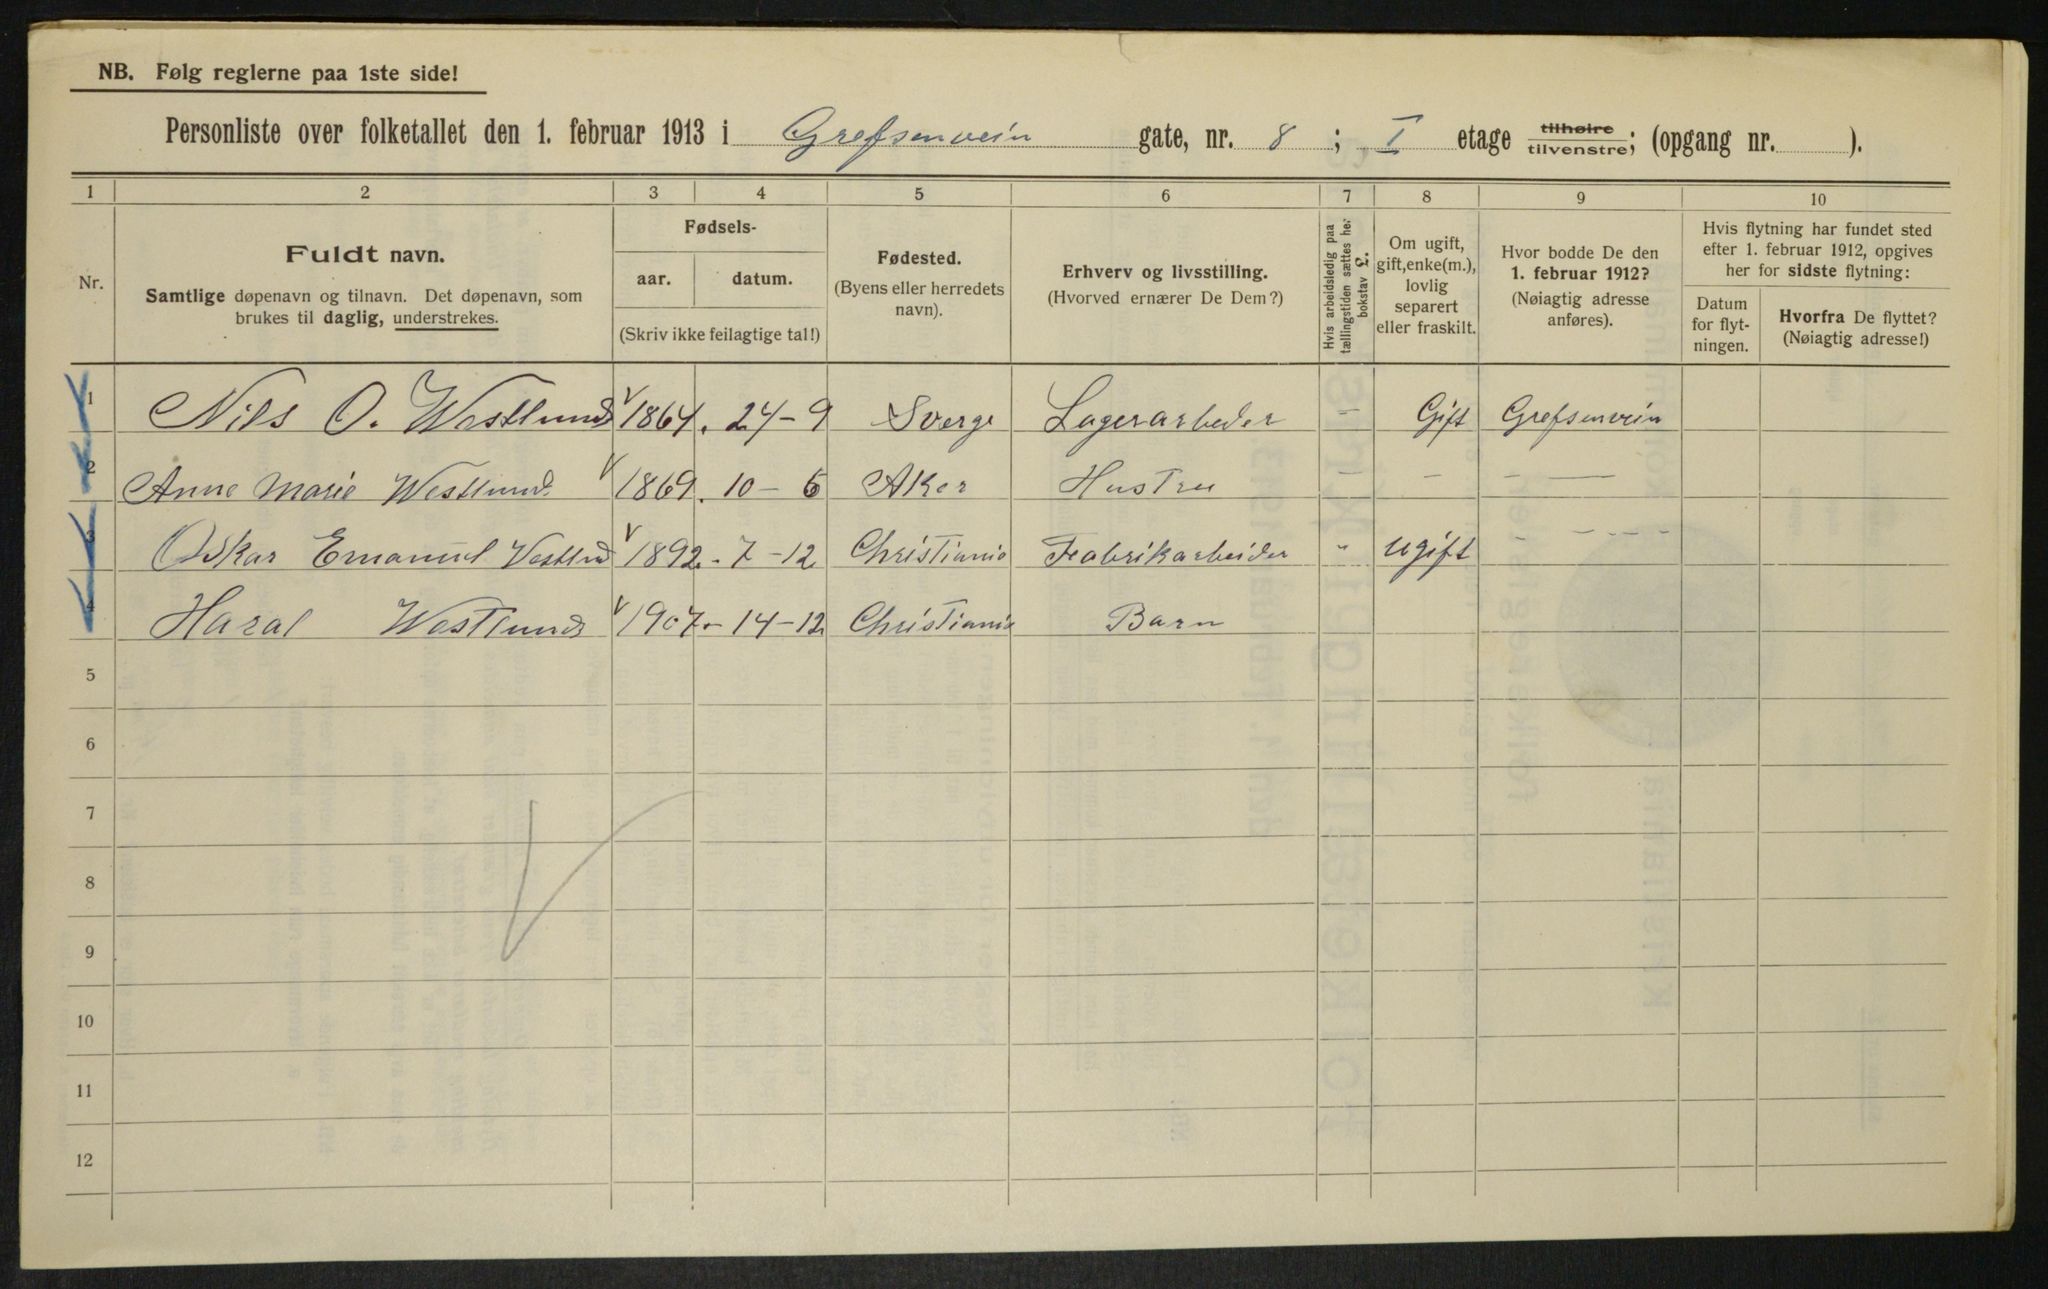 NB. Følg reglerne paa 1ste side!
Personliste over folketallet den 1. februar 1913 i Grefsenvein gate, nr. 8 ; I etage tilhøire tilvenstre; (opgang nr. ).
1 2 3 4 5 6 7 8 9 10
Nr.
Fuldt navn.
Samtlige døpenavn og tilnavn. Det døpenavn, som
brukes til daglig, understrekes.
Fødsels-
aar. datum.
(Skriv ikke feilagtige tal!)
Fødested.
(Byens eller herredets
navn).
Erhverv og livsstilling.
(Hvorved ernærer De Dem?)
Hvis arbeidsledig paa
tællingstiden sættes her
bokstav L.
Om ugift,
gift, enke(m.),
lovlig
separert
eller fraskilt.
Hvor bodde De den
1. februar 1912?
(Nøiagtig adresse
anføres).
Hvis flytning har fundet sted
efter 1. februar 1912, opgives
her for sidste flytning:
Datum
for flyt-
ningen.
Hvorfra De flyttet?
(Nøiagtig adresse!)
1 Nils O. Westlund 1864. 24-9 Sverge Lagerarbeder - Gift Grefsenvein
2 Anne Marie Westlund 1869. 10-6 Aker Hustru - - - —
3 Oskar Emanuel Vestlund 1892.-7-12 Christiania Fabrikarbeider " ugift - - - - -
4 Haral Westlund 1907.-14-12 Christiania Barn
5
6
7
8
9
10
11
12